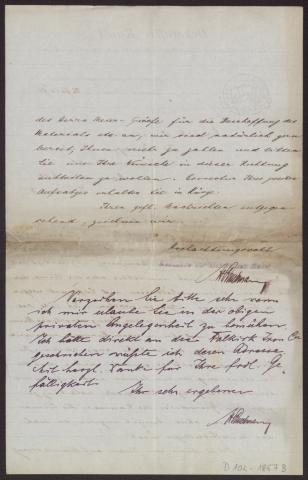 des Herrn Meier-Graefe für die Beschaffung des
Materials etc. an, wir sind natürlich gern
bereit, Ihnen mehr zu zahlen und bitten
Sie uns Ihre Wünsche in dieser Richtung
mitteilen zu wollen. Correctur Ihres
Aufsatzes erhalten Sie in Kürze.
Ihren gefl. Nachrichten entgegen
sehend, zeichnen wir
Hochachtungsvoll
Verzeihen Sie bitte sehr wenn
ich mir erlaube Sie in der obigen
privaten Angelegenheit zu bemühen.
Ich hätte direkt an die Falkirk Iron Co
geschrieben wüßte ich deren Adresse
Mit herzl. Danke für Ihre frdl. Ge
fälligkeit
Ihr sehr ergebener
D 104 - 1867 B